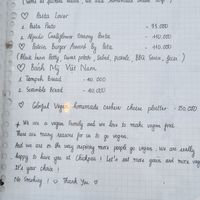 ♡ Pasta Lover
1. Pasta Pesto - 95.000
2. Alfredo Cauliflower Creamy Penta - 110.000
♡ Protein Burger Powered by Beta - 110.000
(Black bean Patty, sweet potato, Salad, pickle, BBQ Sauce,
♡ Bánh Mỳ Việt Nam
1. Tempeh Bread - 40.000
2. Scramble Bread - 40.000
♡ Colorful Vegan homemade cashew cheese platter - 250.000
* We are a vegan family and we love to make vegan food.
There are many reasons for us to go vegan.
And we are or the very inspiring more people go vegan, we are really
happy to have you at Chickpea! Let's eat more green and more veg
It's your choice!
No Smoking! ☺ Thank You ♡